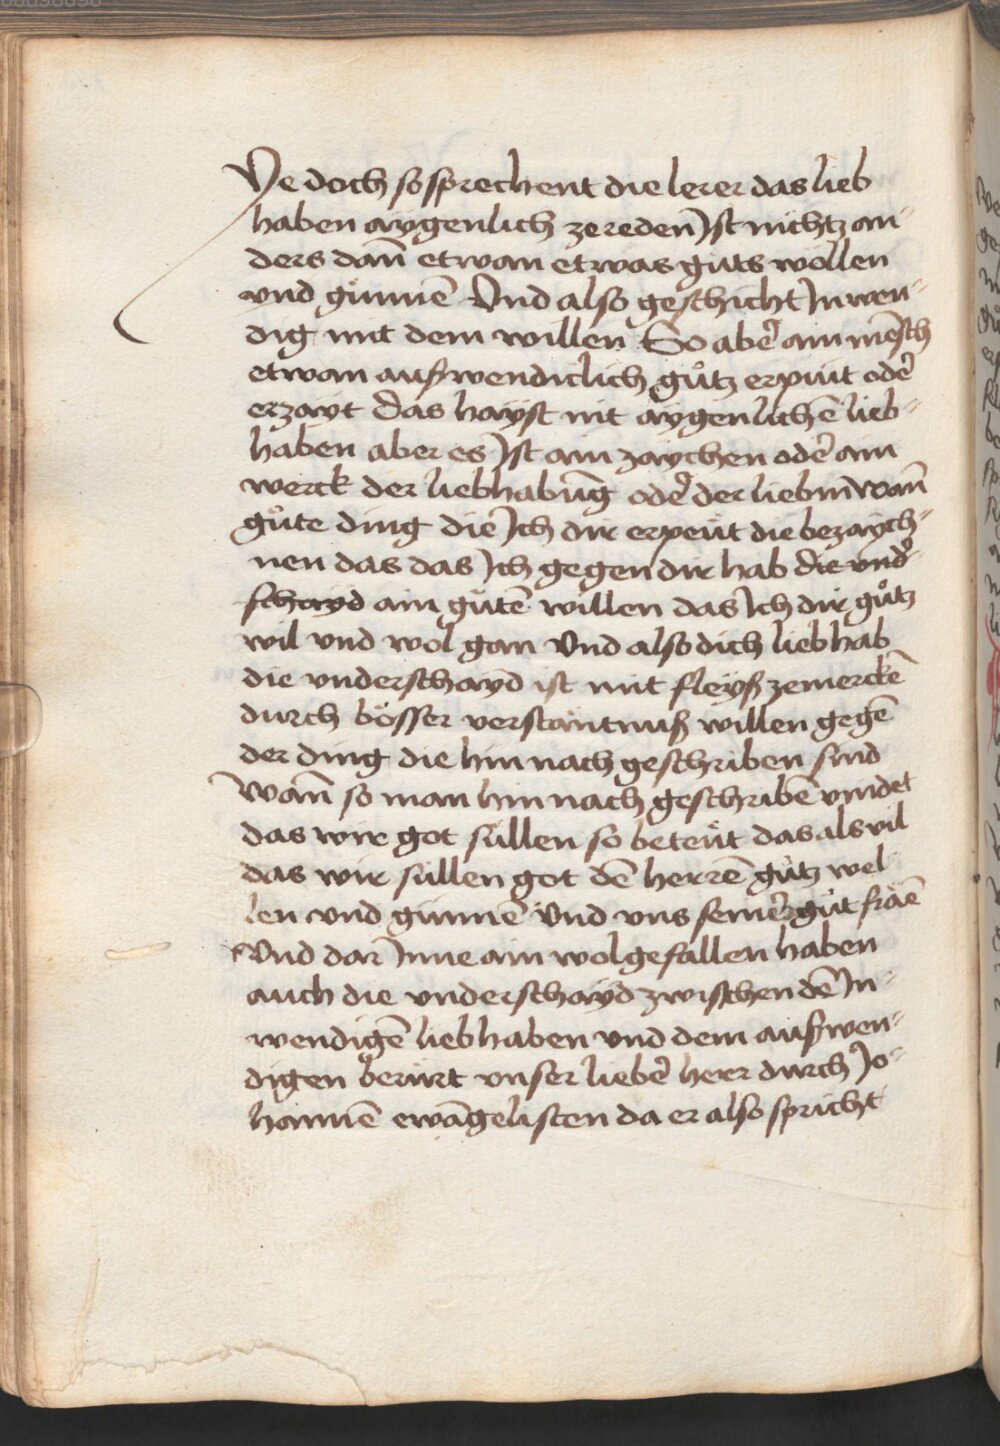 Ye doch so sprechent die lerer das lieb
haben aygenlich ze reden Ist nichtz an-
ders dan̄ etwan etwas guts wöllen
vnd gu̇nnē Vnd also geschicht Inwen-
dig mit dem willen So abeꝛ̉ ain mēsch
etwan außwendiclich gu̇tz erpiut odeꝛ̉
erzayt Das hayst nit aygenlichē lieb-
haben aber es Ist ain zaychen odeꝛ̉ ain
werck der liebhabūg odeꝛ̉ der liebin̄ wan̄
gůte ding die Ich dir erpeut die bezaych-
nen das das Ich gegen dir hab die vnd̉
schayd ain gůtē willen das Ich dir gůtz
wil vnd wol gan Vnd also dich lieb hab
die vnderschayd ist mit fleyß zemerckē
durch bösser verstäntnuß willen gegē
der ding die hin nach geschriben sind
Wan̄ so man hin nach geschribē vindet
das wir got süllen so beteüt das als vil
das wir süllen got dē herrē gůtz wel
len vnd günnē Vnd vns seineꝛ̉ gu̇t fräē
Vnd dar Inne ain wolgefallen haben
auch die vnderschayd zwischen dē In-
wendigē lieb haben vnd dem außwen-
digen berürt vnser liebeꝛ̉ herr durch Jo-
hannē ewāgelisten da er also spricht